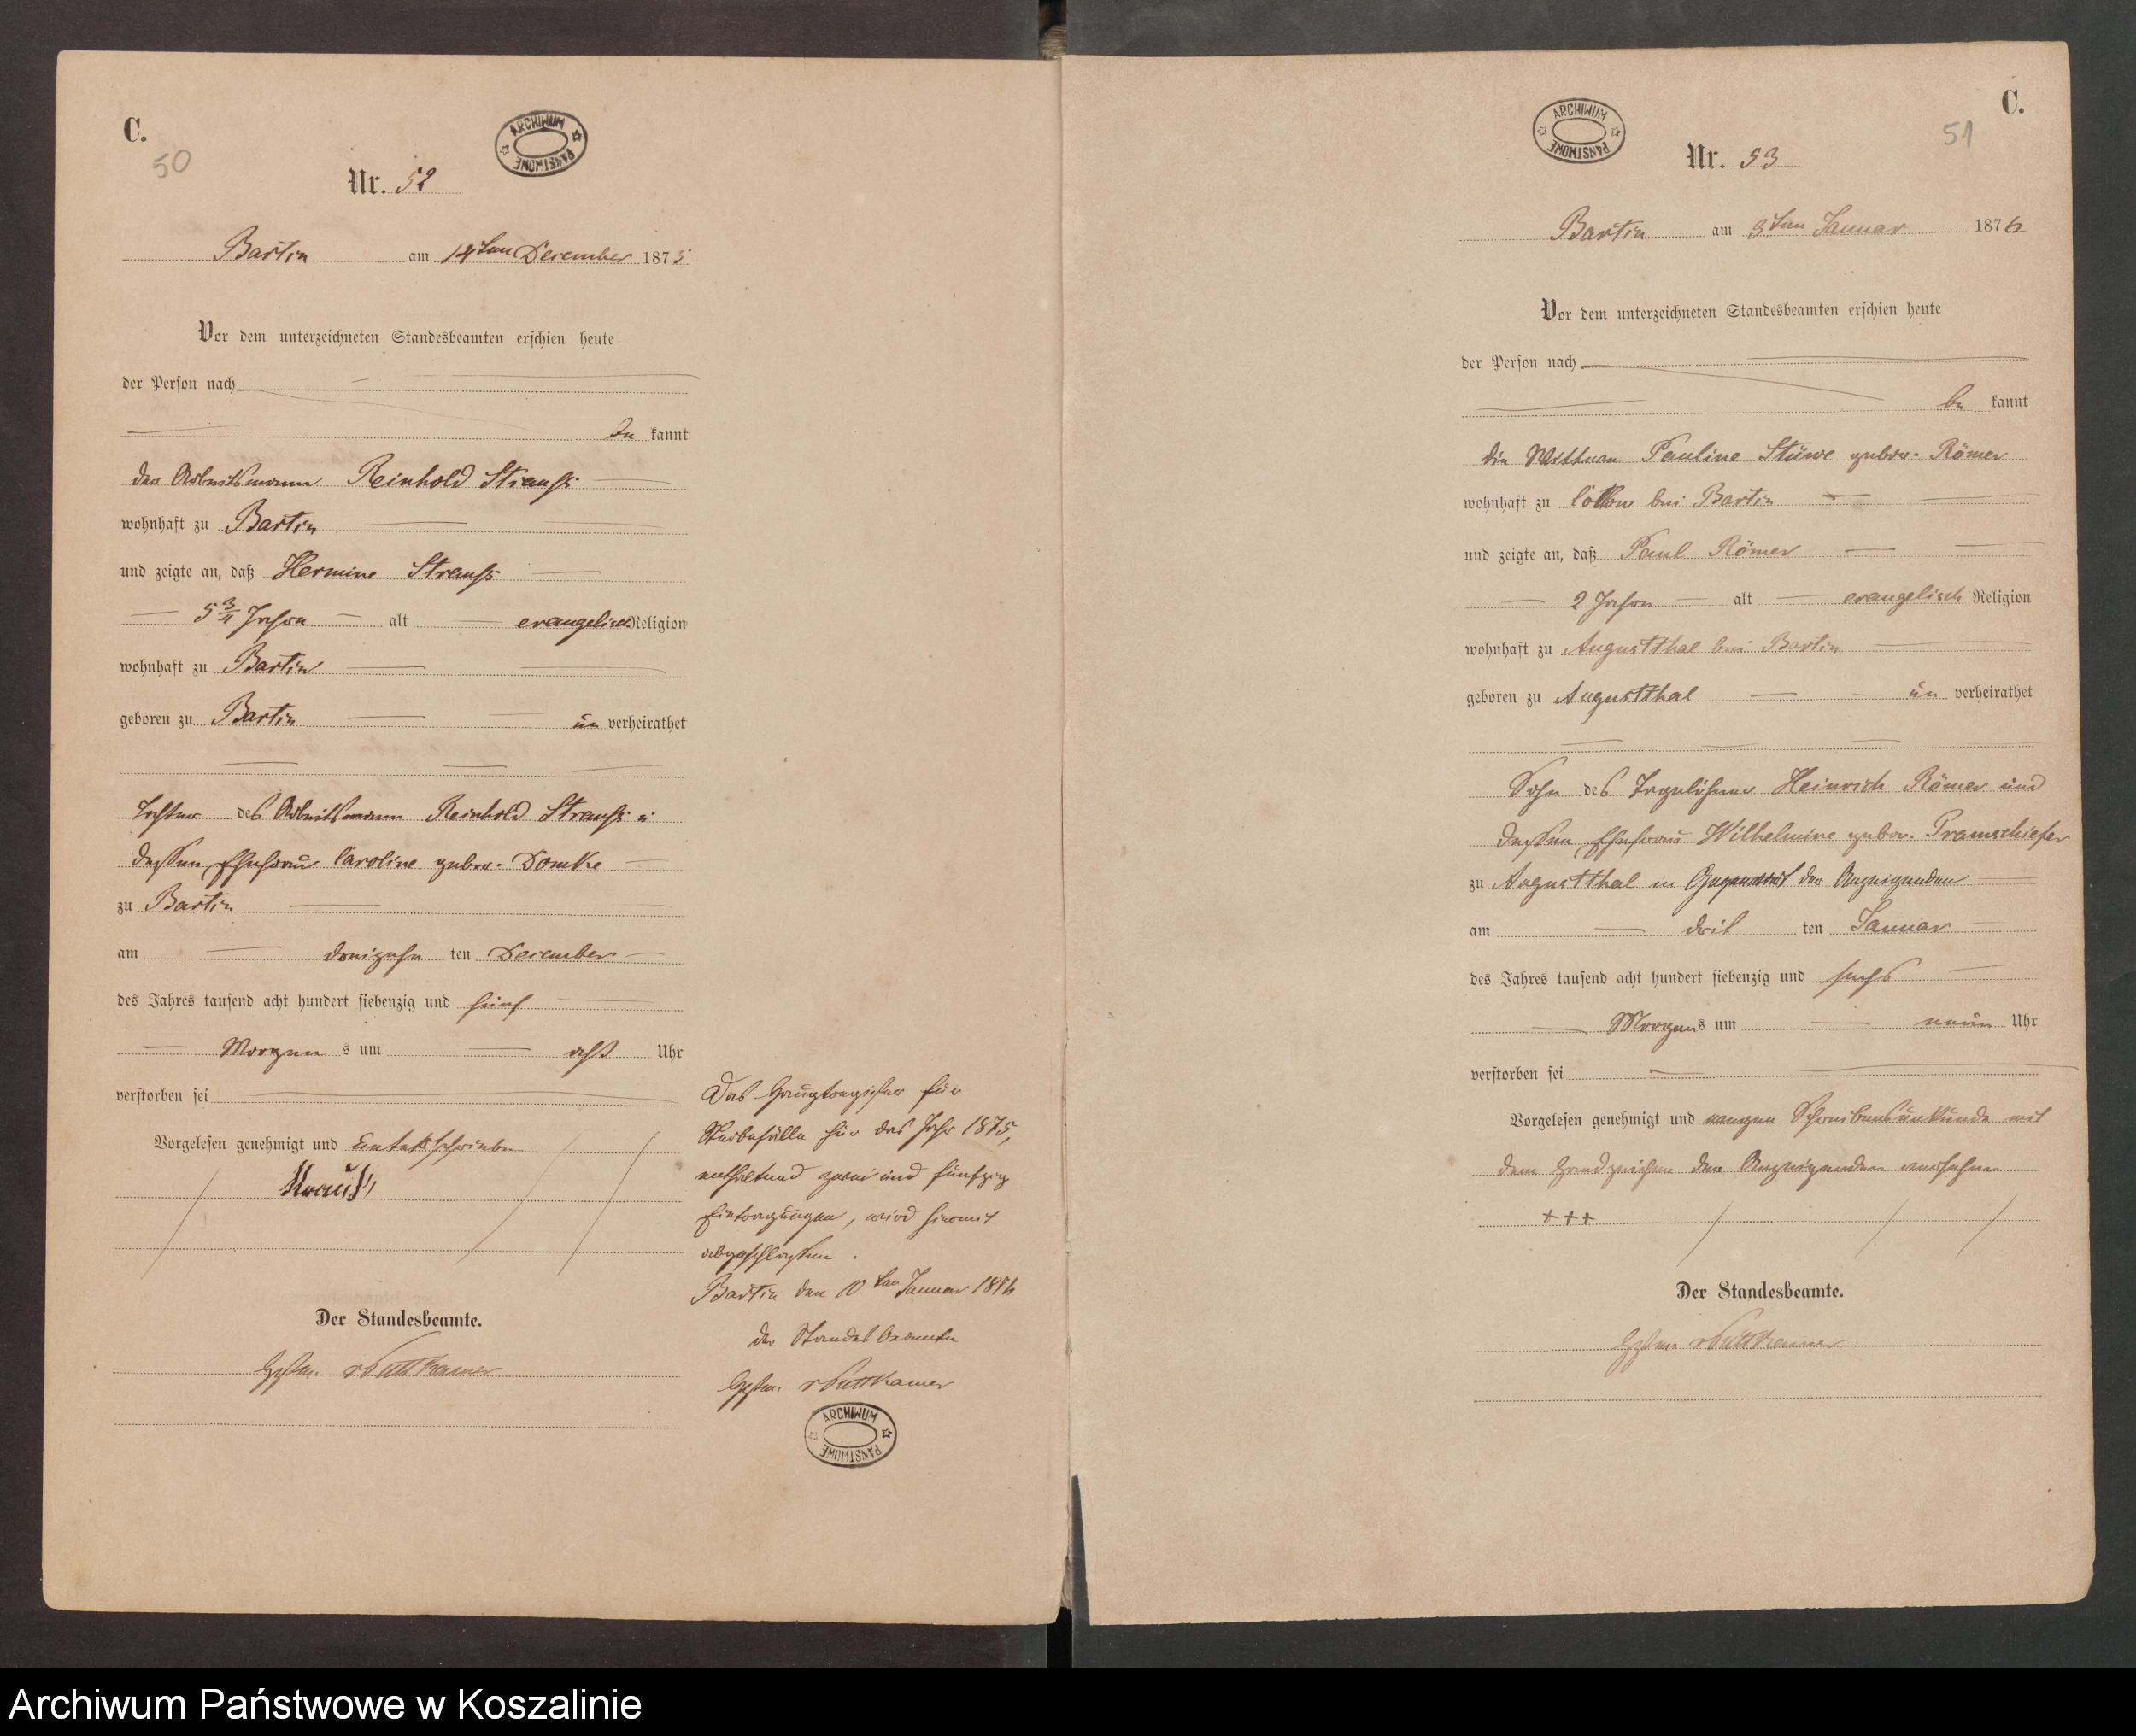 C.
50
ARCHIWUM PAŃSTWOWE
Nr. 52
Bartin am 14ten December 1875
Vor dem unterzeichneten Standesbeamten erschien heute
der Person nach
be kannt
der Arbeitsmann Reinhold Strauß
wohnhaft zu Bartin
und zeigte an, daß Hermine Strauß
5 3/4 Jahre alt evangelisch Religion
wohnhaft zu Bartin
geboren zu Bartin un verheirathet
Tochter des Arbeitsmann Reinhold Strauß u
dessen Ehefrau Caroline gebor. Domke
zu Bartin
am dreizehn ten December
des Jahres tausend acht hundert siebenzig und fünf
Morgen s um acht Uhr
verstorben sei
Vorgelesen genehmigt und unterschrieben
Strauß
Der Standesbeamte.
v Puttkamer
Das Hauptregister für
Sterbefälle für das Jahr 1875,
enthaltend zwei und fünfzig
Eintragungen, wird hiermit
abgeschlossen.
Bartin den 10ten Januar
der Standesbeamte
v Puttkamer
ARCHIWUM PAŃSTWOWE
C.
51
ARCHIWUM PAŃSTWOWE
Nr. 53
Bartin am 3ten Januar 1876
Vor dem unterzeichneten Standesbeamten erschien heute
der Person nach
be kannt
die Wittwe Pauline Stüwe gebor. Römer
wohnhaft zu bei Bartin
und zeigte an, daß Paul Römer
2 Jahre alt evangelisch Religion
wohnhaft zu Augustthal bei Bartin
geboren zu Augustthal un verheirathet
Sohn des Tagelöhner Heinrich Römer und
dessen Ehefrau Wilhelmine gebor. Pramschiefer
zu Augustthal in Gegenwart der Anzeigenden
am drit ten Januar
des Jahres tausend acht hundert siebenzig und sechs
Morgens um neun Uhr
verstorben sei
Vorgelesen genehmigt und wegen Schreibensunkunde mit
dem Handzeichen der Anzeigenden versehen
+++
Der Standesbeamte.
v Puttkamer
Archiwum Państwowe w Koszalinie